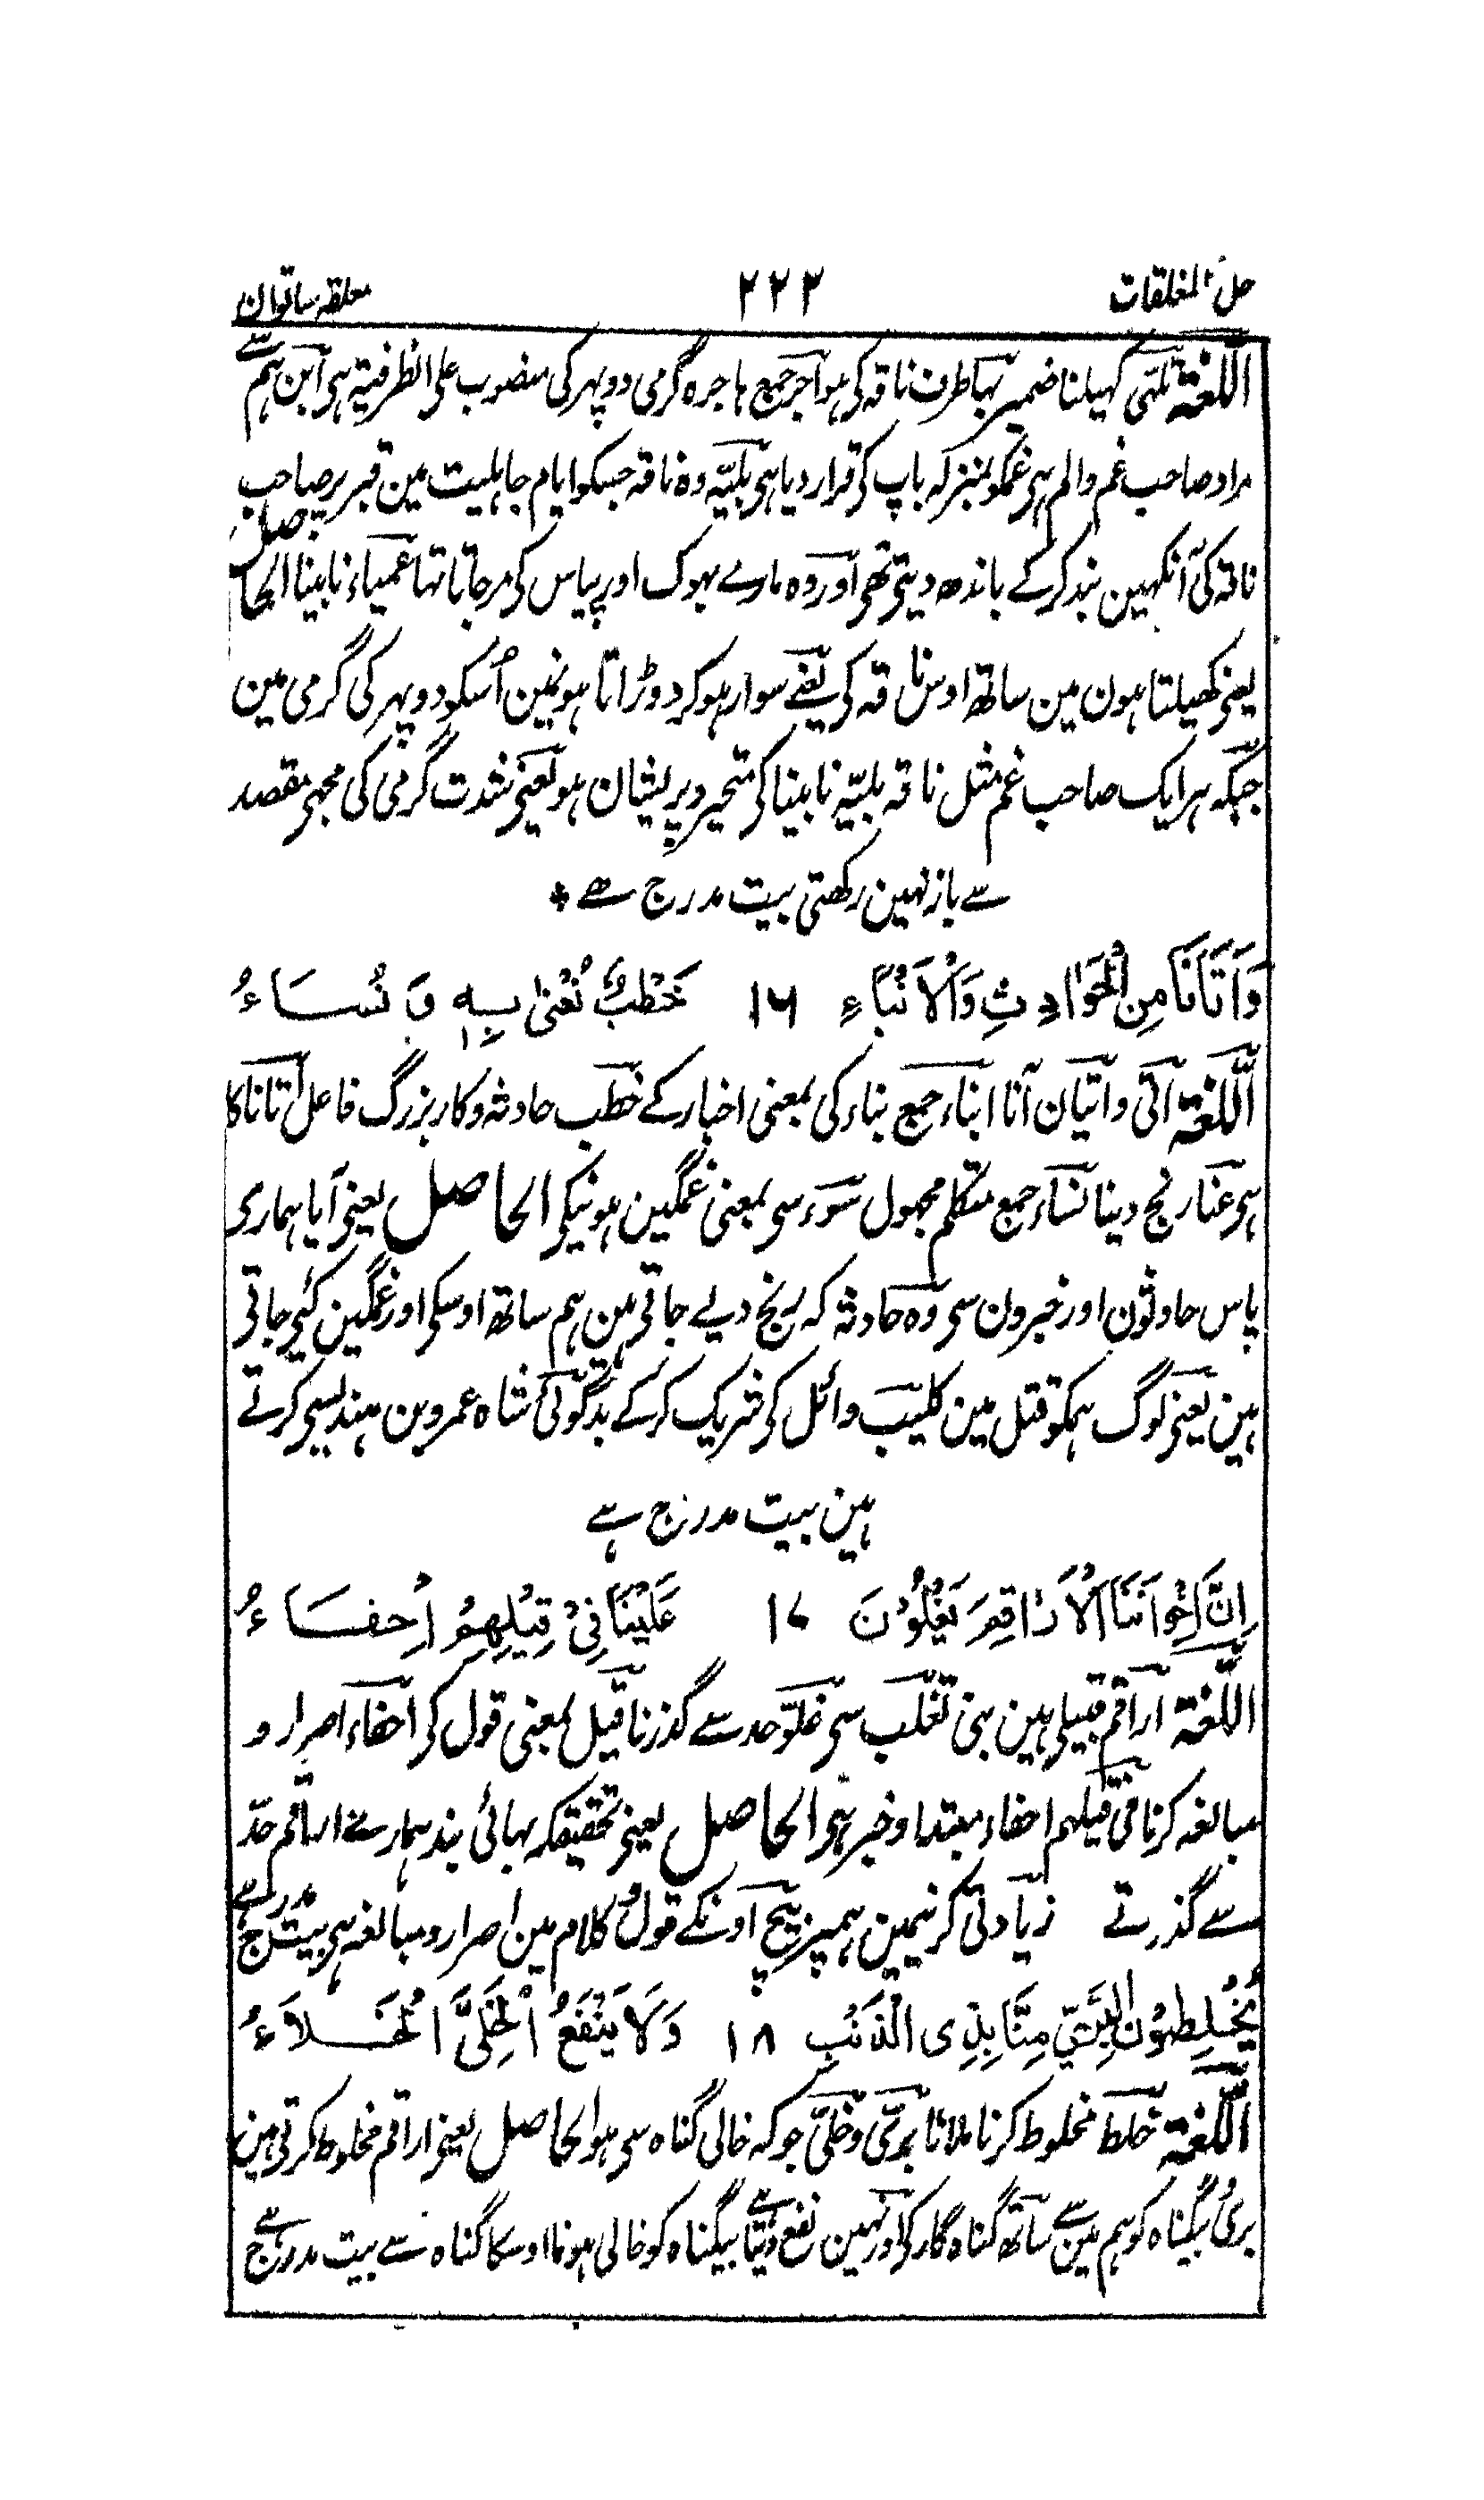 حل المغلقات ۲۲۲ معلقہ ساتوان
اللّغة تلہّی کہیلنا ضمیر بہا طرف ناقہ کی ہواجر جمع ہاجرہ گرمی دوپہر کی منصوب علی الظرفیۃ ہی ابن ہم سے
مراد صاحب غم والم ہی غمکو بمنزلہ باپ کی قرار دیا ہی بلیّہ وہ ناقہ جسکو ایام جاہلیت مین قبر پر صاحب
ناقہ کی آنکہین بند کرکے باندھ دیتی تھی اور وہ مارے بہوک اور پیاس کی مرجاتا تہا عمیاء نابینا الحاصل
یعنی کھیلتا ہون مین ساتھ اوس ناقہ کی یعنے سوار ہوکر دوڑاتا ہونمین اُسکو دوپہر کی گرمی مین
جبکہ ہر ایک صاحب غم مثل ناقہ بلیّہ نابینا کی متحیر و پریشان ہو یعنی شدت گرمی کی مجہی مقصد
سے باز نہین رکھتی بیت مدرج ہے
وَاَتَانَا مِنَ الْحَوَادِثِ وَالْاَنْبَاءِ ۱۶ خَطْبٌ نُعْنٰی بِهٖ وَنُسَاءُ
اللّغة آتی واتیان آنا انباء جمع نباء کی بمعنی اخبار کے خطب حادثہ وکار بزرگ فاعل اتانا کا
ہی عنا رنج دینا نساء جمع متکلم مجہول سَوء سی بمعنی غمگین ہونیکی الحاصل یعنی آیا ہماری
پاس حادثون اور خبرون سی وہ حادثہ کہ رنج دیے جاتی ہین ہم ساتھ اوسکی اور غمگین کئی جاتی
ہین یعنی لوگ ہمکو قتل مین کلیب وائل کی شریک کرکے بدگوئی شاہ عمرو بن ہند سی کرتے
ہین بیت مدرج ہے
اِنَّ اِخْوَانَنَا الْاَرَاقِمَ یَغْلُوْنَ ۱۷ عَلَیْنَا فِیْ قِیْلِهِمْ اِحْفَاءُ
اللّغة اراقم قبیلی ہین بنی تغلب سی غلوّ حد سے گذرنا قیل بمعنی قول کی احفاء اصرار و
مبالغہ کرنا فی قیلہم احفاء مبتدا و خبر ہی الحاصل یعنی تحقیقکہ بہائی بند ہمارے اراقم حدّ
سے گذرتے زیادتی کرنیمین ہمپر بیچ اونکے قول و کلام مین اصرار و مبالغہ ہی بیت مدرج ہے
یَخْلِطُوْنَ الْبَرِیَّ مِنَّا بِذِی الْذَنْبِ ۱۸ وَلَا یَنْفَعُ الْخَلِیَّ الْخَلَاءُ
اللّغة خلط مخلوط کرنا ملانا برّی وخلیّ جو کہ خالی گناہ سی ہو الحاصل یعنی اراقم مخلوط کرتی ہین
بریٔ بیگناہ کو ہم مین سے ساتھ گناہ گار کی اور نہین نفع دیتا ہے بیگناہ کو خالی ہونا اوسکا گناہ سے بیت مدرج ہے